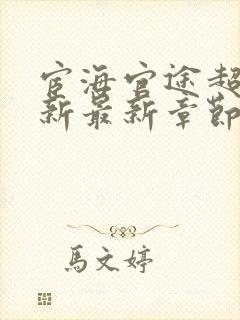 宦海官途超
新最新章節
馬文婷